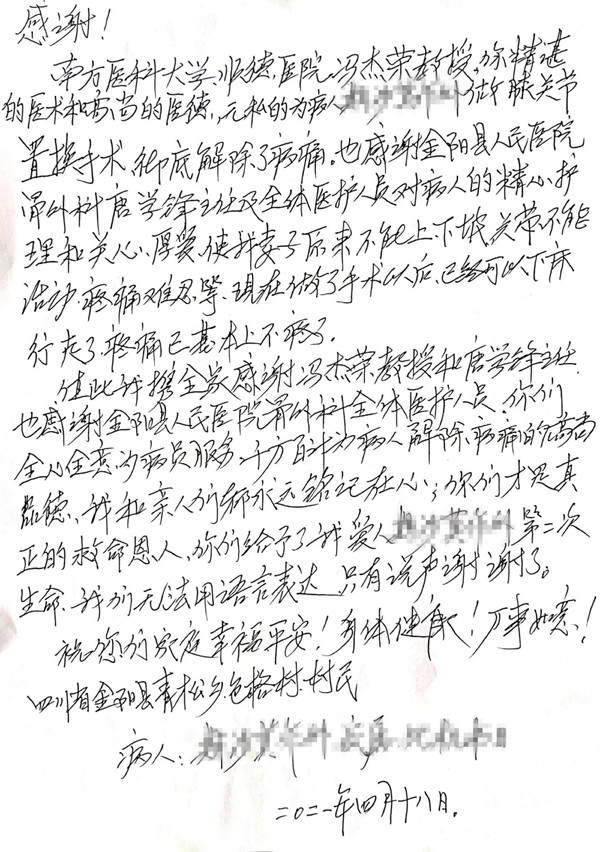 感谢！
南方医科大学顺德医院冯杰荣教授，你精湛
的医术和高尚的医德，无私的为病人 做膝关节
置换手术，彻底解除了病痛。也感谢金阳县人民医院
骨外科唐学锋主任及全体医护人员对病人的精心护
理和关心、厚爱，使我妻子原来不能上、下坡，关节不能
活动，疼痛难忍等。现在做了手术以后，已经可以下床
行走了，疼痛已基本上不疼了。
值此我携全家感谢冯杰荣教授和唐学锋主任，
也感谢金阳县人民医院骨外科全体医护人员，你们
全心全意为病员服务，千方百计为病人解除病痛的高尚
品德，我和亲人们都永远铭记在心；你们才是真
正的救命恩人，你们给予了我爱人 第二次
生命，我们无法用语言表达，只有说声谢谢了。
祝您们家庭幸福平安！身体健康！万事如意！
四川省金阳县青松乡色格村村民
病人：
二〇二一年四月十八日。